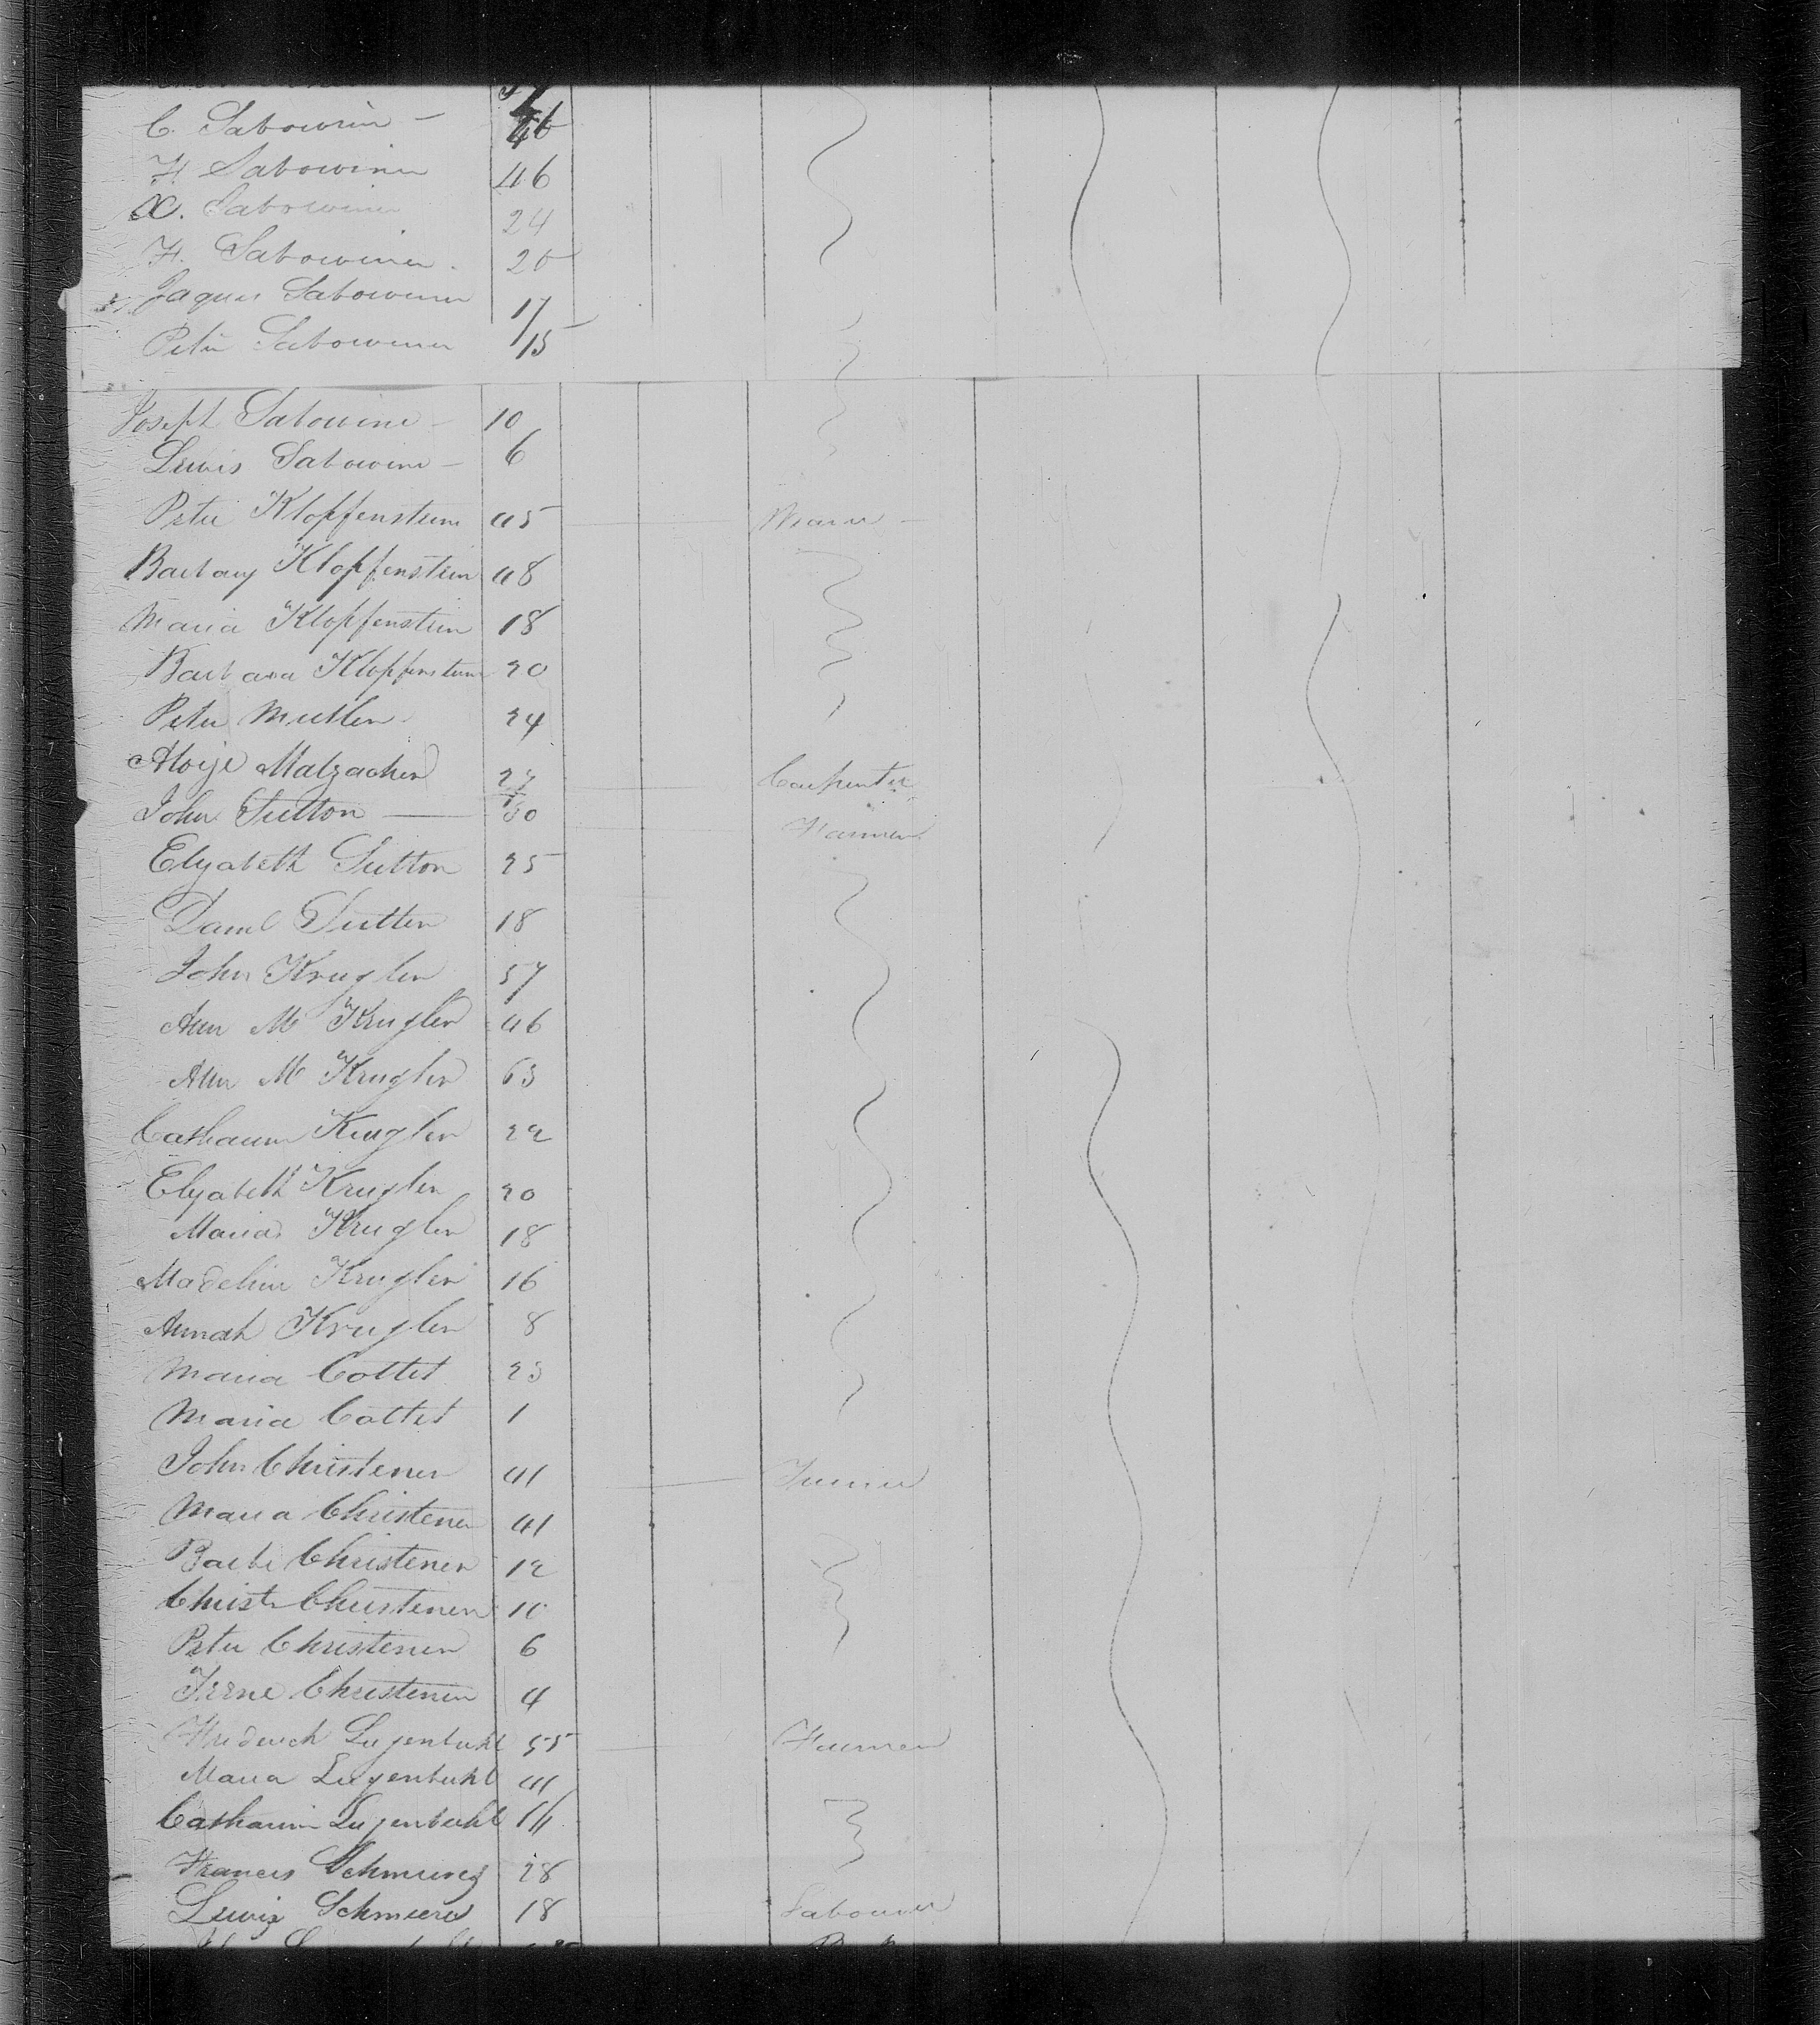 C. Sabowin — 46
H Sabowiner 46
X. Sabowiner 24
H. Sabowiner. 20
Jaques Sabowiner 17
Peter Sabowiner 15
Joseph Sabowine — 10
Lewis Sabowine — 6
Peter Klopfenstein 45 Weaver —
Barbary Klopfenstein 48
Maria Klopfenstein 18
Barbara Klopfenstein 20
Peter Muller 24
Aloise Malzacher 27 Carpenter
John Sutton — 30 Farmer
Elyabeth Sutton 25
Danl Sutter 18
John Krugler 57
Ann M Krugler 46
Ann M Krugler 63
Catharin Krugler 22
Elyabeth Krugler 20
Maria Krugler 18
Madelin Krugler 16
Annah Krugler 8
Maria Cottet 23
Maria Cottet 1
John Christener 41
Maria Christener 41
Barbe Christener 12
Christ Christener 10
Peter Christener 6
Irene Christener 4
Frederich Lugenbuhl 55 Farmer
Maria Lugenbuhl 41
Catharin Lugenbuhl 14
Francis Schmierez 28
Lewis Schmierez 18 Labourer